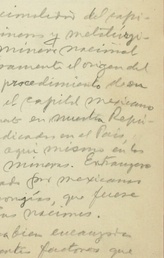 cionalidad del capi-
mineros y metalúrgi-
minero nacional
ramente el origen del
procedimiento de su
el capital mexicano
en nuestra Repú-
dicados en el País,
aquí mismo en los
mineros. Extranjero
por mexicanos
que fuese
naciones.
bien encauzadas
factores que